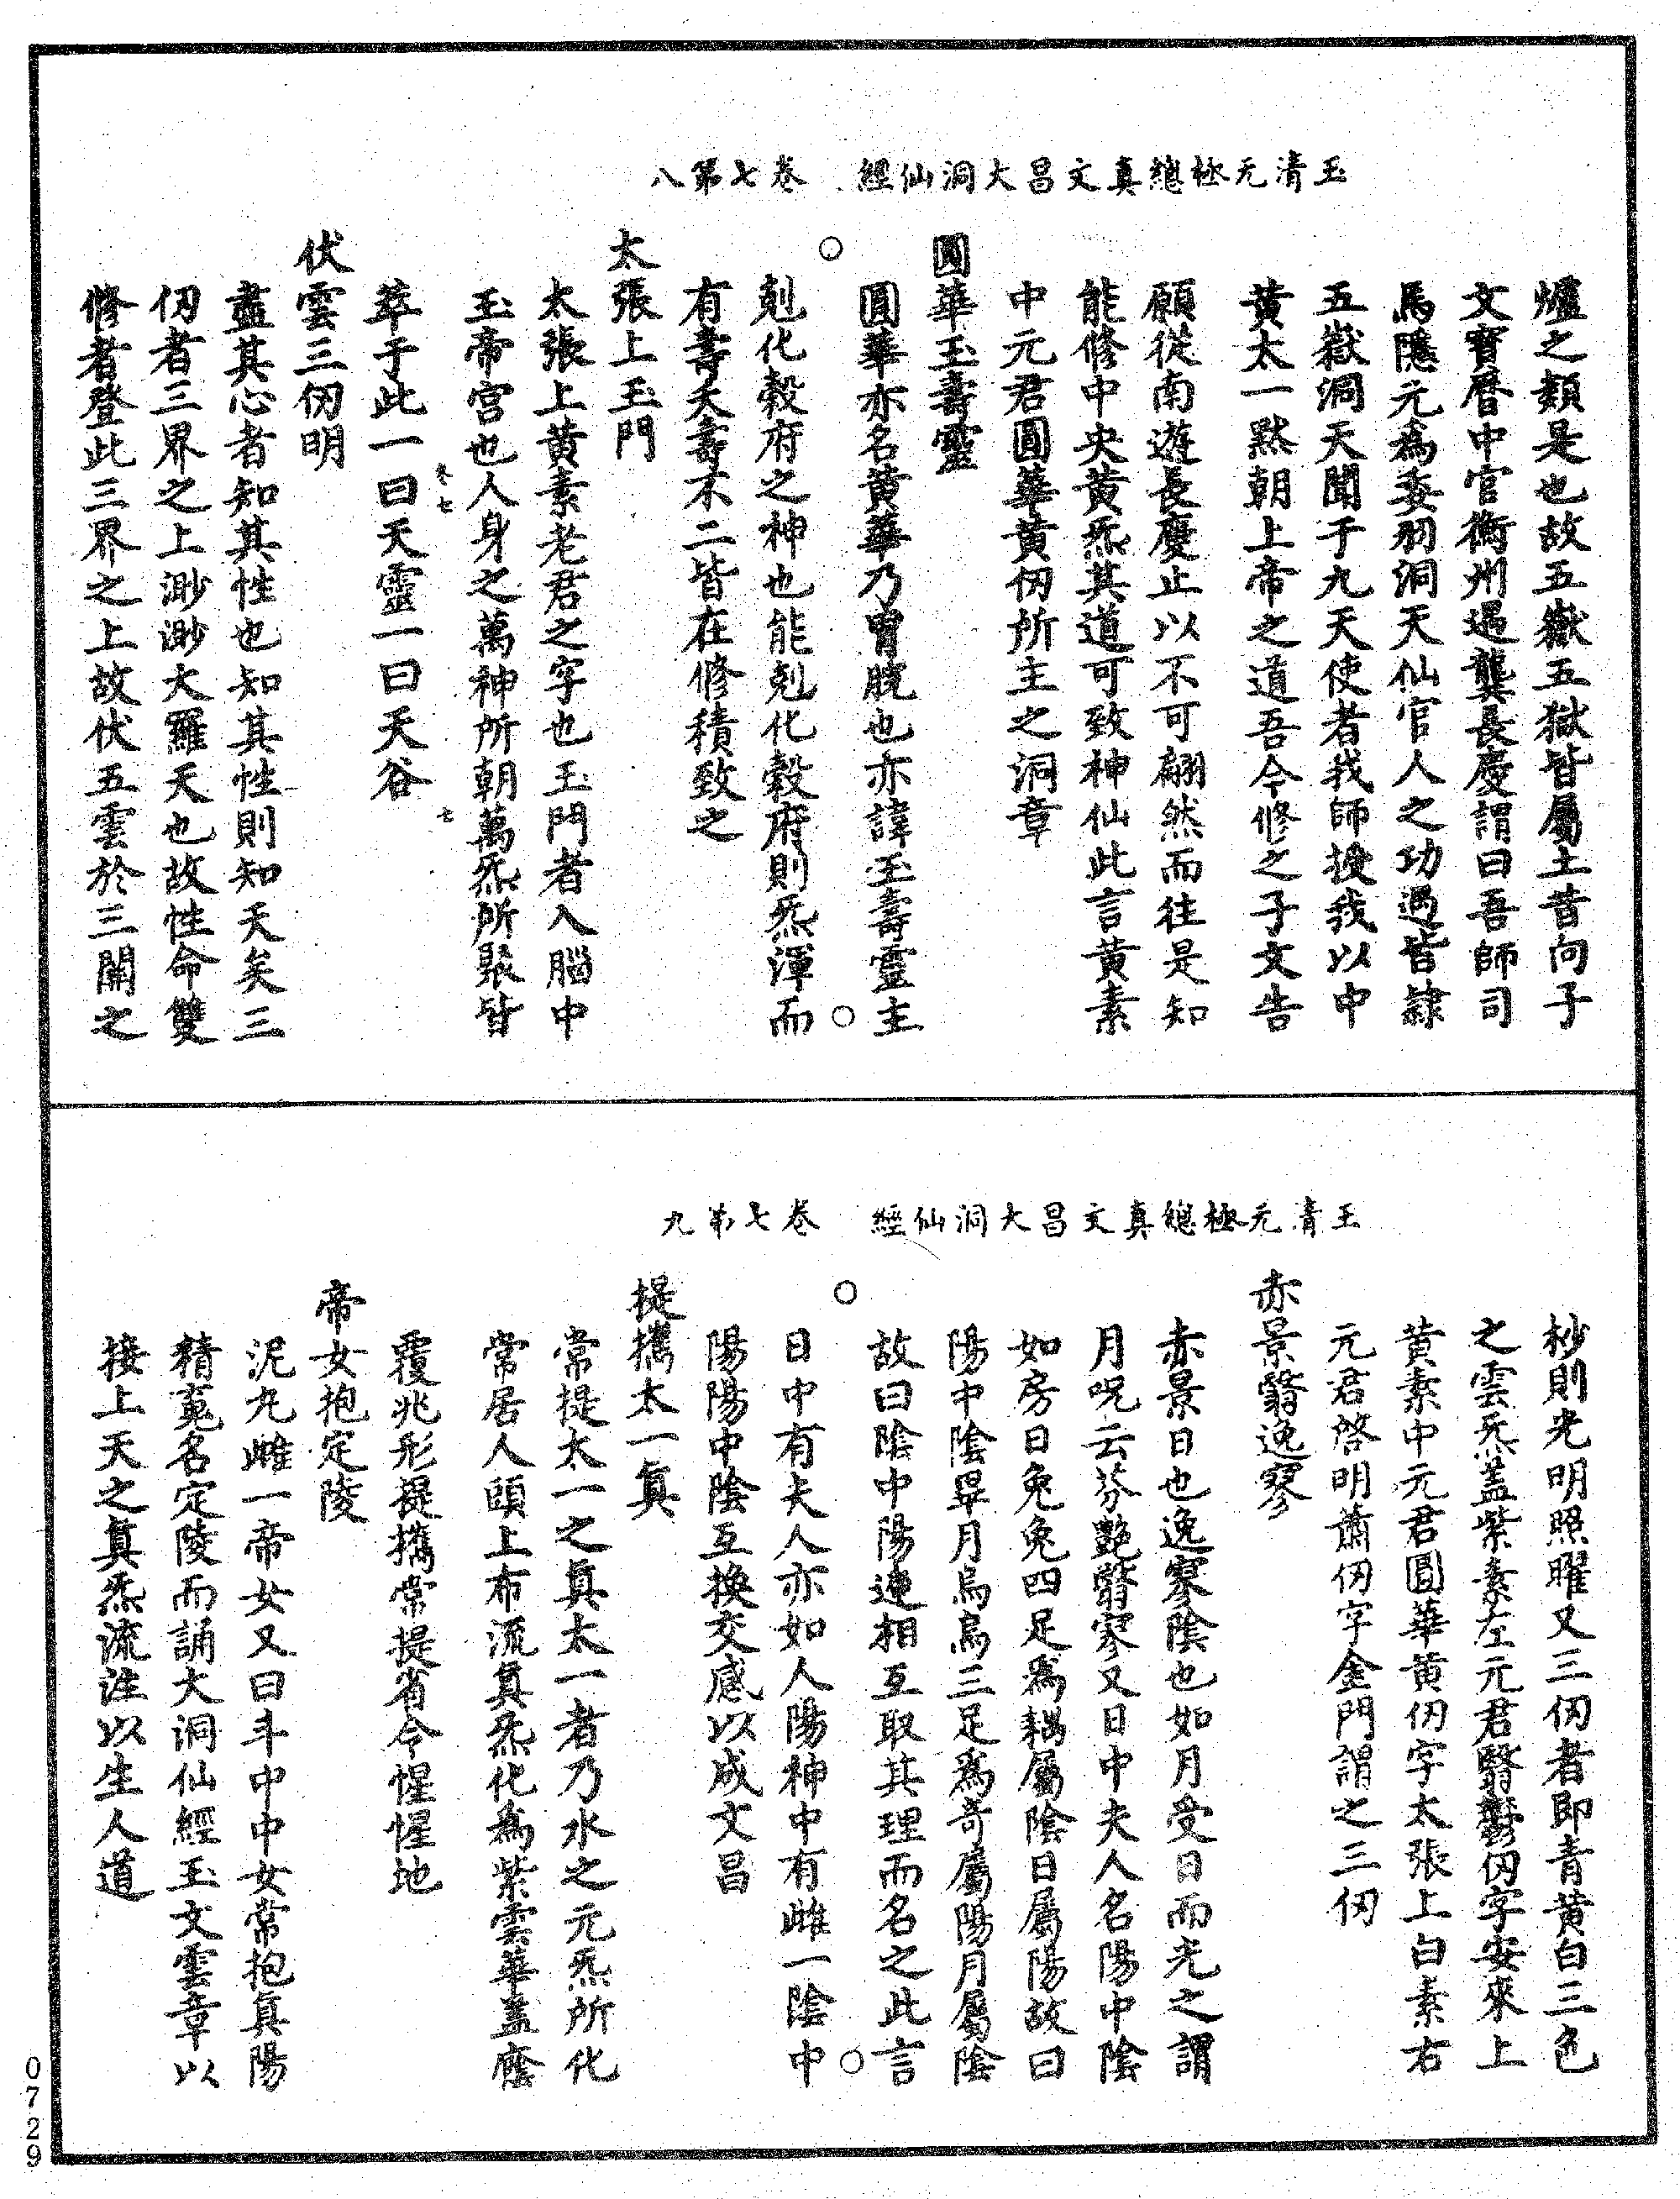 玉清无極總真文昌大洞仙經　卷七第八
爐之類是也故五嶽五獄皆屬土昔向子
文寶曆中官衡州遇龔長慶謂曰吾師司
馬隱元為委羽洞天仙官人之功過皆隸
五嶽洞天聞于九天使者我師授我以中
黄太一黙朝上帝之道吾今修之子文告
願從南遊長慶止以不可翩然而往是知
能修中央黄炁其道可致神仙此言黄素
中元君圓華黄仞所主之洞章
圓華玉壽靈
圓華亦名黄華乃胃脘也亦諱玉壽靈主
剋化穀府之神也能剋化穀府則炁渾而
有壽夭壽不二皆在修積致之
太張上玉門
太張上黄素老君之字也玉門者入腦中
玉帝宮也人身之萬神所朝萬炁所聚皆
萃于此一曰天靈一曰天谷
伏雲三仞明
盡其心者知其性也知其性則知天矣三
仞者三界之上渺渺大羅天也故性命雙
修者登此三界之上故伏五雲於三關之
玉清无極總真文昌大洞仙經　卷七第九
杪則光明照曜又三仞者即青黄白三色
之雲炁蓋紫素左元君翳鬱仞字安來上
黄素中元君圓華黄仞字太張上白素右
元君啓明蕭仞字金門謂之三仞
赤景翳逸寥
赤景日也逸寥陰也如月受日而光之謂
月呪云芬艶翳寥又日中夫人名陽中陰
如房日兔兔四足為耦屬陰日屬陽故曰
陽中陰畢月烏烏三足為奇屬陽月屬陰
故曰陰中陽迭相互取其理而名之此言
日中有夫人亦如人陽神中有雌一陰中
陽陽中陰互換交感以成文昌
提攜太一真
常提太一之真太一者乃水之元炁所化
常居人頭上布流真炁化為紫雲華蓋廕
覆兆形提攜常提省令惺惺地
帝女抱定陵
泥丸雌一帝女又曰斗中中女常抱真陽
精䰟名定陵而誦大洞仙經玉文雲章以
接上天之真炁流注以生人道
0729